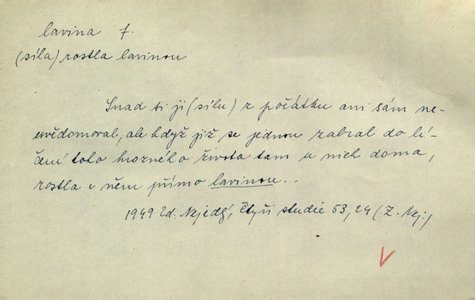 lavina f.
(síla) rostla lavinou
Snad si ji (sílu) z počátku ani sám ne-
uvědomoval, ale když již se jednou zabral do lí-
čení toho hrozného života tam u nich doma,
rostla v něm přímo lavinou...
1949 Zd. Nejedlý, Čtyři studie 53, 24 (Z. Nej.)
V